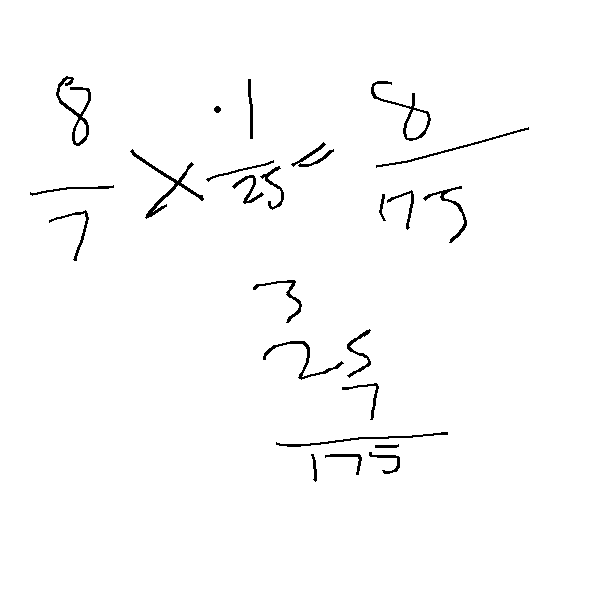 8/7 × 1/25 = 8/175
3
25
7
175